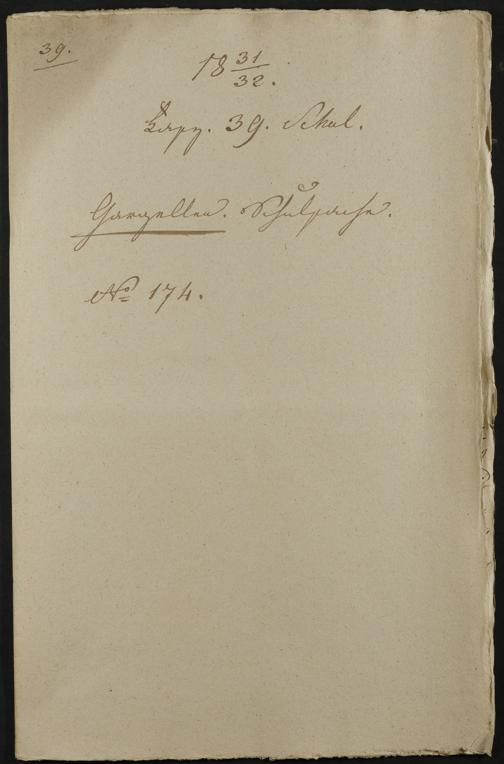 39.
18 31/32.
Fasz. 39. Schul.
Gargellen. Schulsache.
No 174.